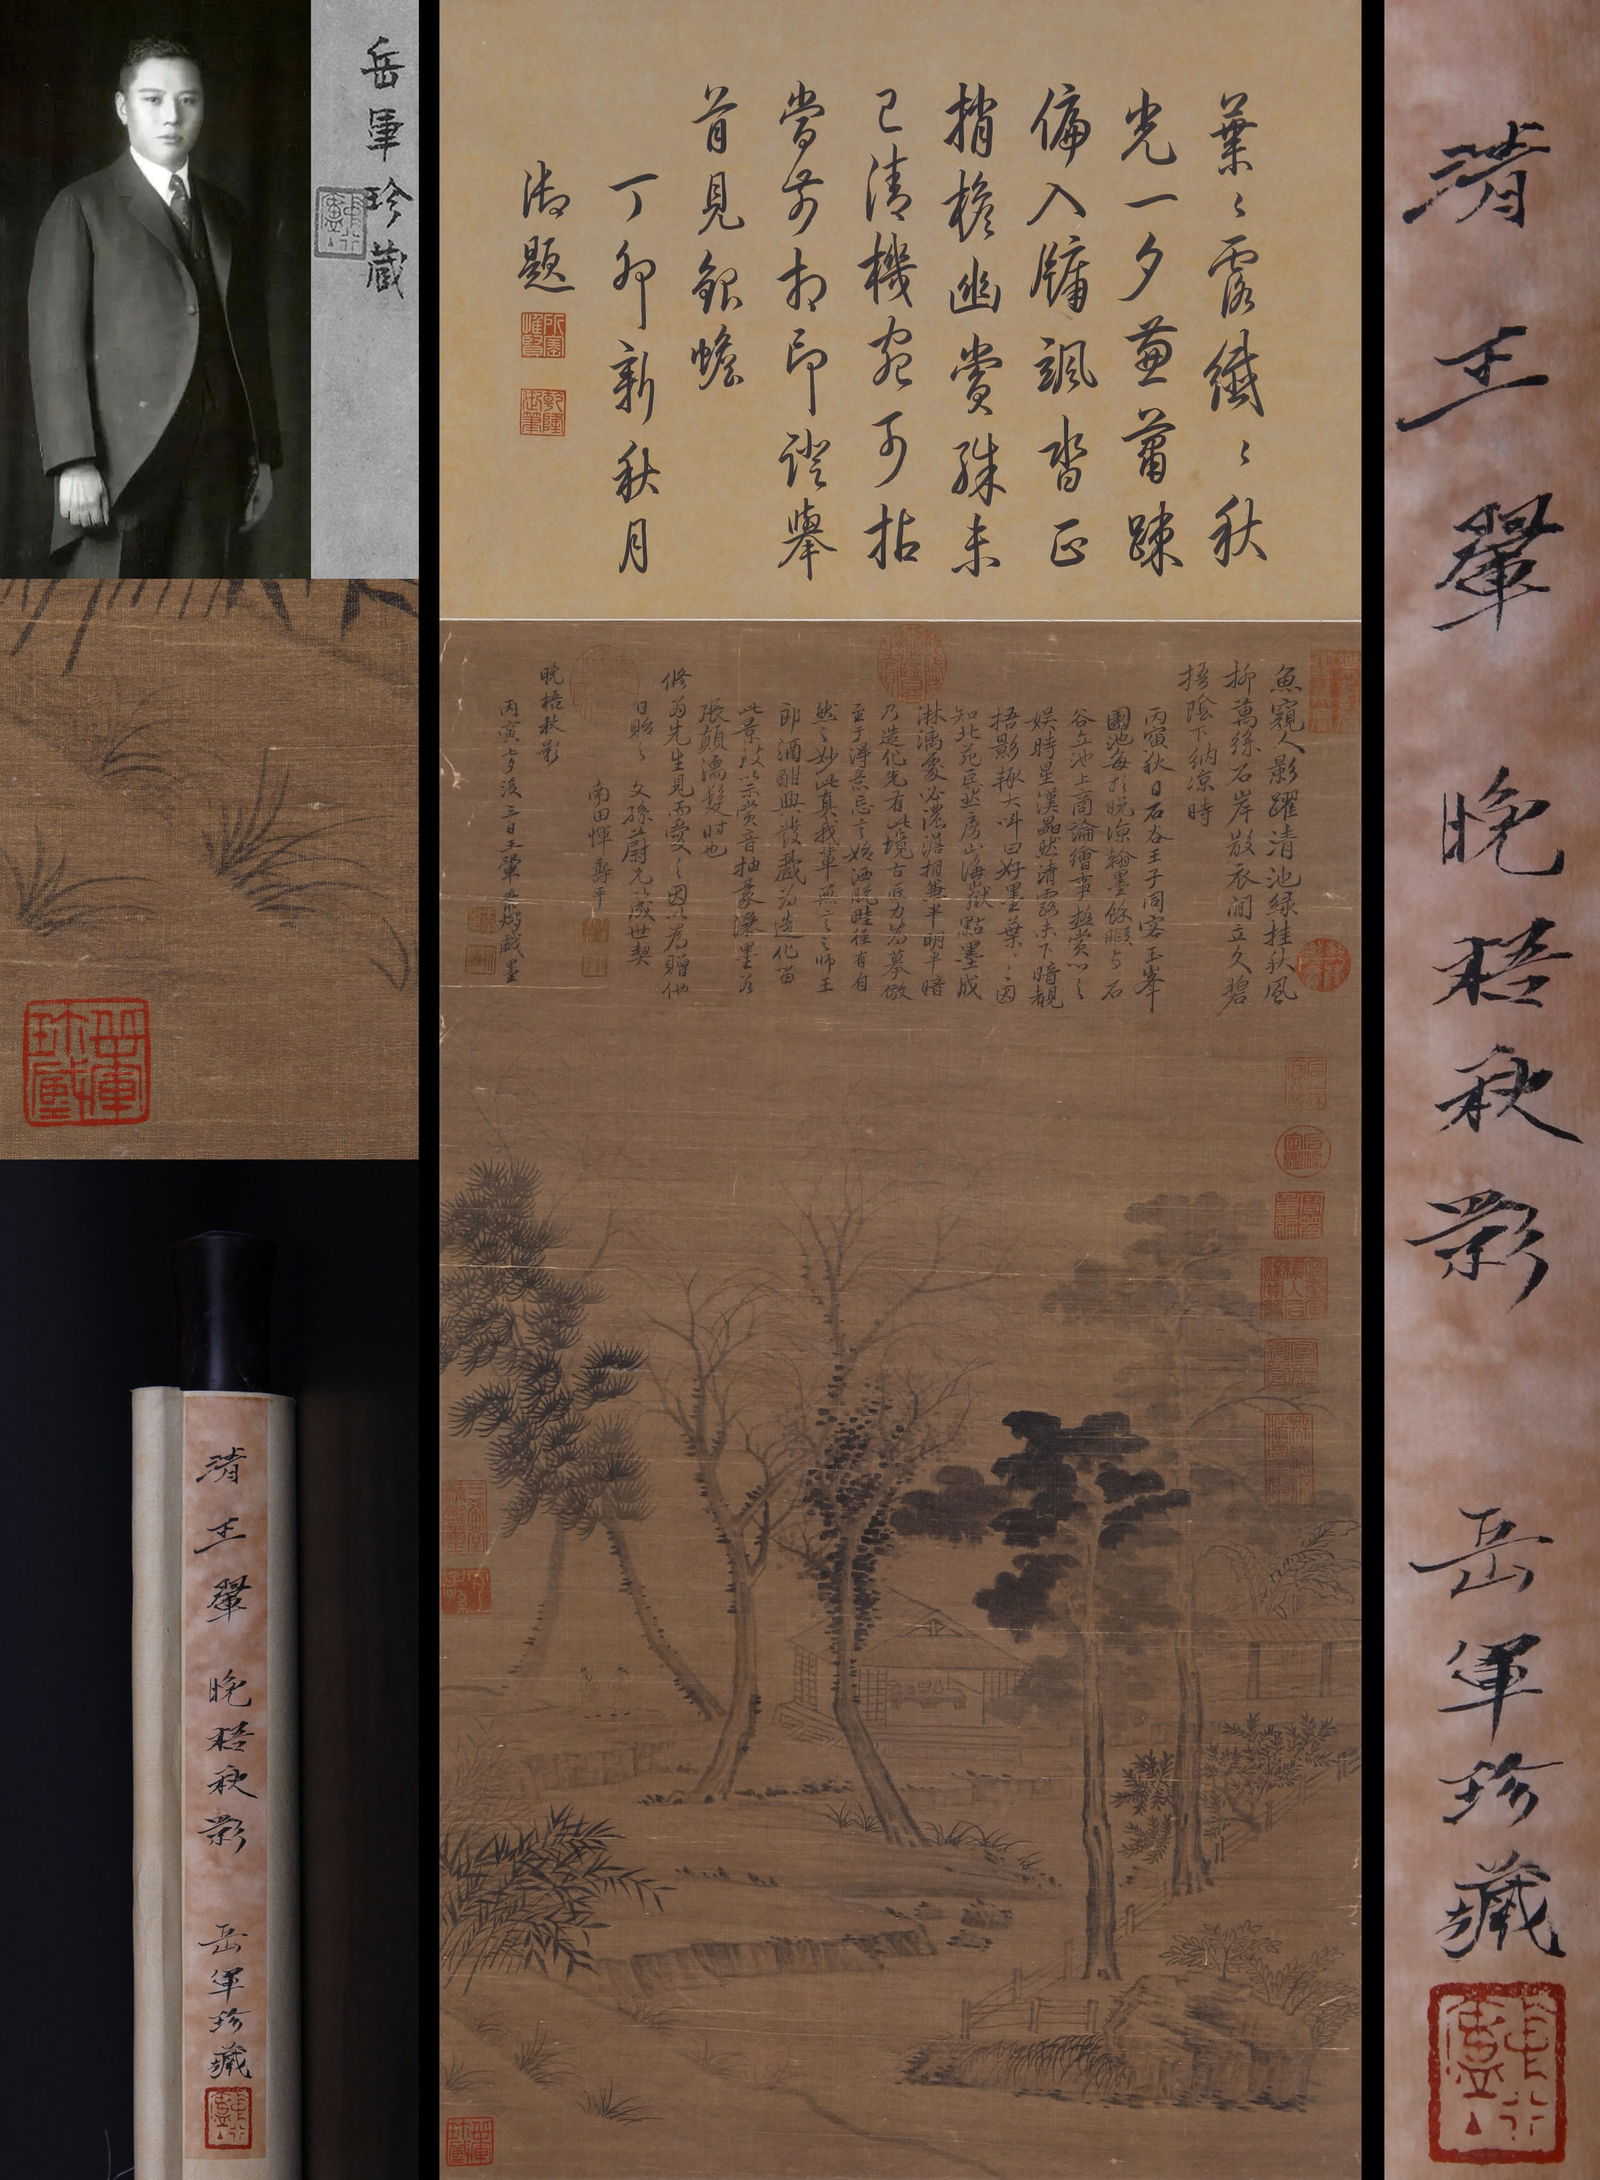 岳軍珍藏
葉〻露纖〻秋
光一夕蕭蕭疎
偏入牖颯沓正
捎檐幽賞殊未
已清機宛可拈
當前相印證舉
首見銀蟾
丁卯新秋月
御題
所寶惟賢
乾隆御筆
魚窺人影躍清池綠挂秋風
柳萬絲石岸散衣閒立久碧
梧陰下納凉時
丙寅秋日石谷王子同客玉峯
園池每於晚凉翰墨餘暇與石
谷立池上商論繪事極賞心之
娱時星漢晶然清露未下暗覩
梧影輒大呌曰好墨葉〻因
知北苑巨然房山海嶽點墨成
淋漓處必濃澹相兼半明半暗
乃造化先有此境古匠力為摹倣
至于得意忘言始洒脱畦徑有自
然之妙此真我輩無言之師王
郎酒酣興發戲為造化留
此景以示賞音抽豪灑墨若
張顛濡髮時也
修翁先生見而愛之因以為贈他
日貽之文孫蔚兄以篤世契
南田惲壽平
晚梧秋影
丙寅七夕後三日王翬乘燭戲墨
清 王翬 晚梧秋影 岳軍珍藏
清 王翬 晚梧秋影 岳軍珍藏